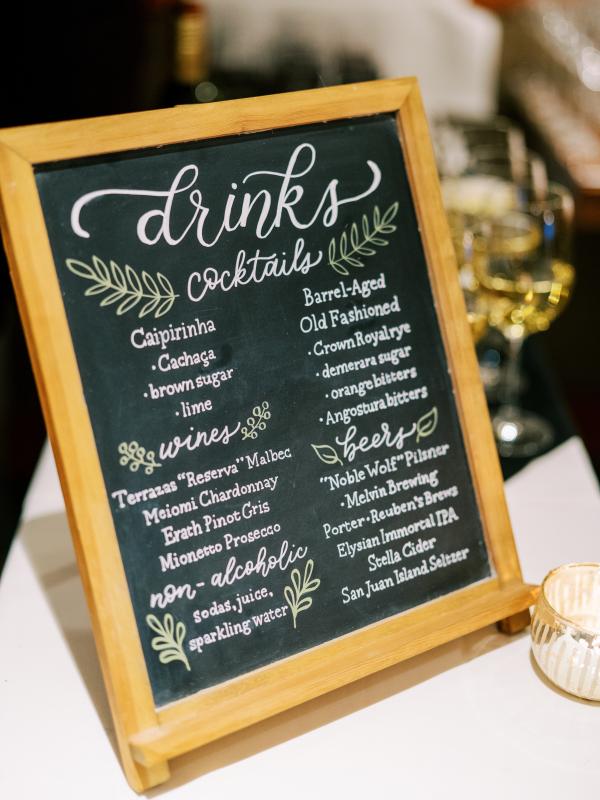 drinks
cocktails
Caipirinha
·Cachaça
·brown sugar
·lime
Barrel-Aged
Old Fashioned
·Crown Royal rye
·demerara sugar
·orange bitters
·Angostura bitters
wines
Terrazas "Reserva" Malbec
Meiomi Chardonnay
Erath Pinot Gris
Mionetto Prosecco
non-alcoholic
sodas, juice,
sparkling water
beers
"Noble Wolf" Pilsner
·Melvin Brewing
Porter·Reuben's Brews
Elysian Immortal IPA
Stella Cider
San Juan Island Seltzer